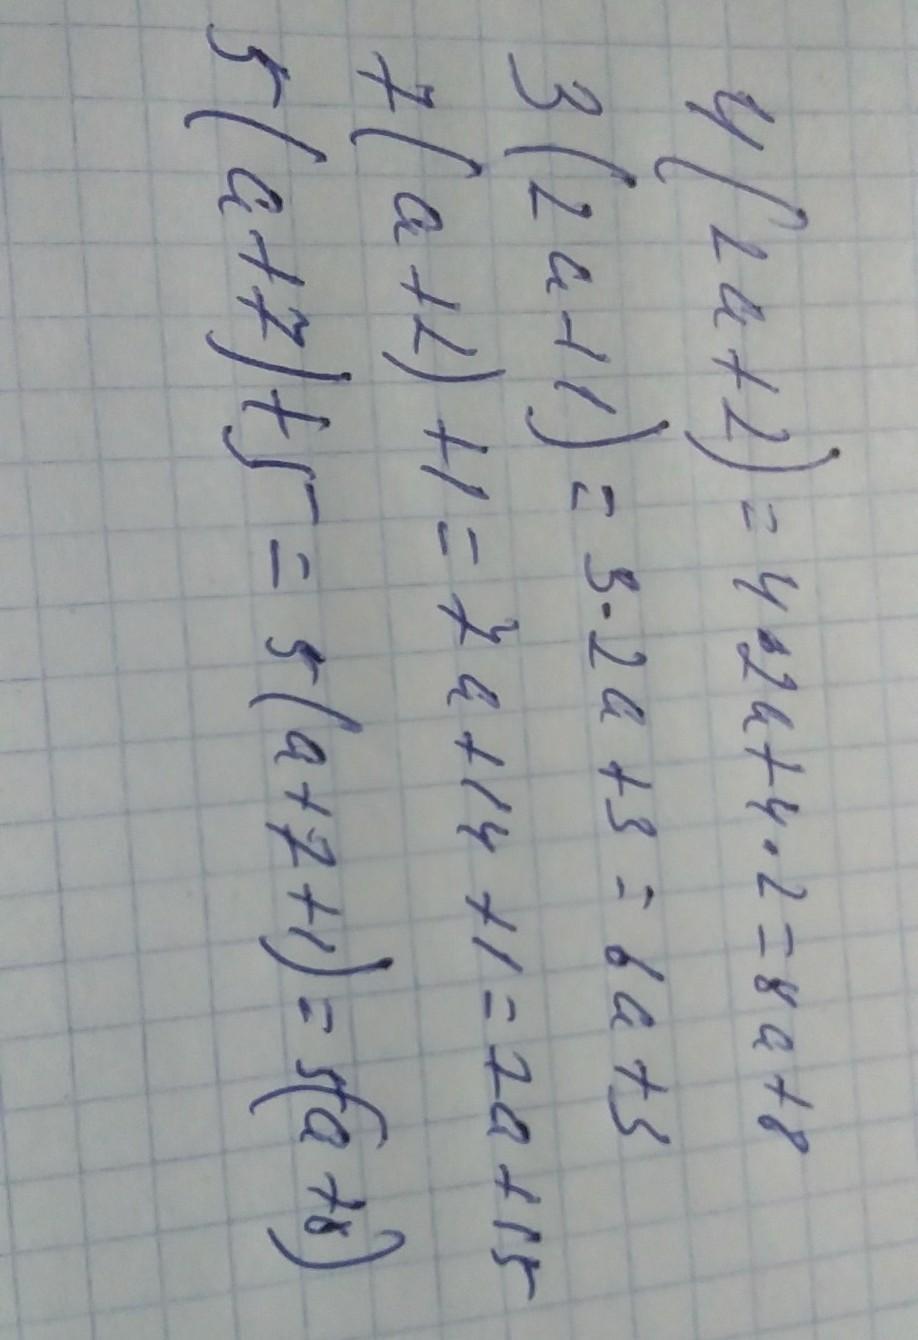 4(2a+2)=4·2a+4·2=8a+8
3(2a+1)=3·2a+3=6a+3
7(a+2)+1=7a+14+1=7a+15
5(a+7)+5=5(a+7+1)=5(a+8)